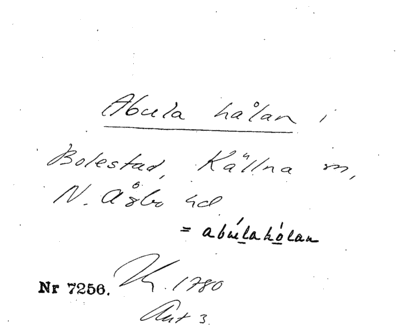 Abula hålan i
Bolestad, Källna sn,
N. Åsbo hd
= abúlahòlan
Nr 7256. 1780
Akt 3.